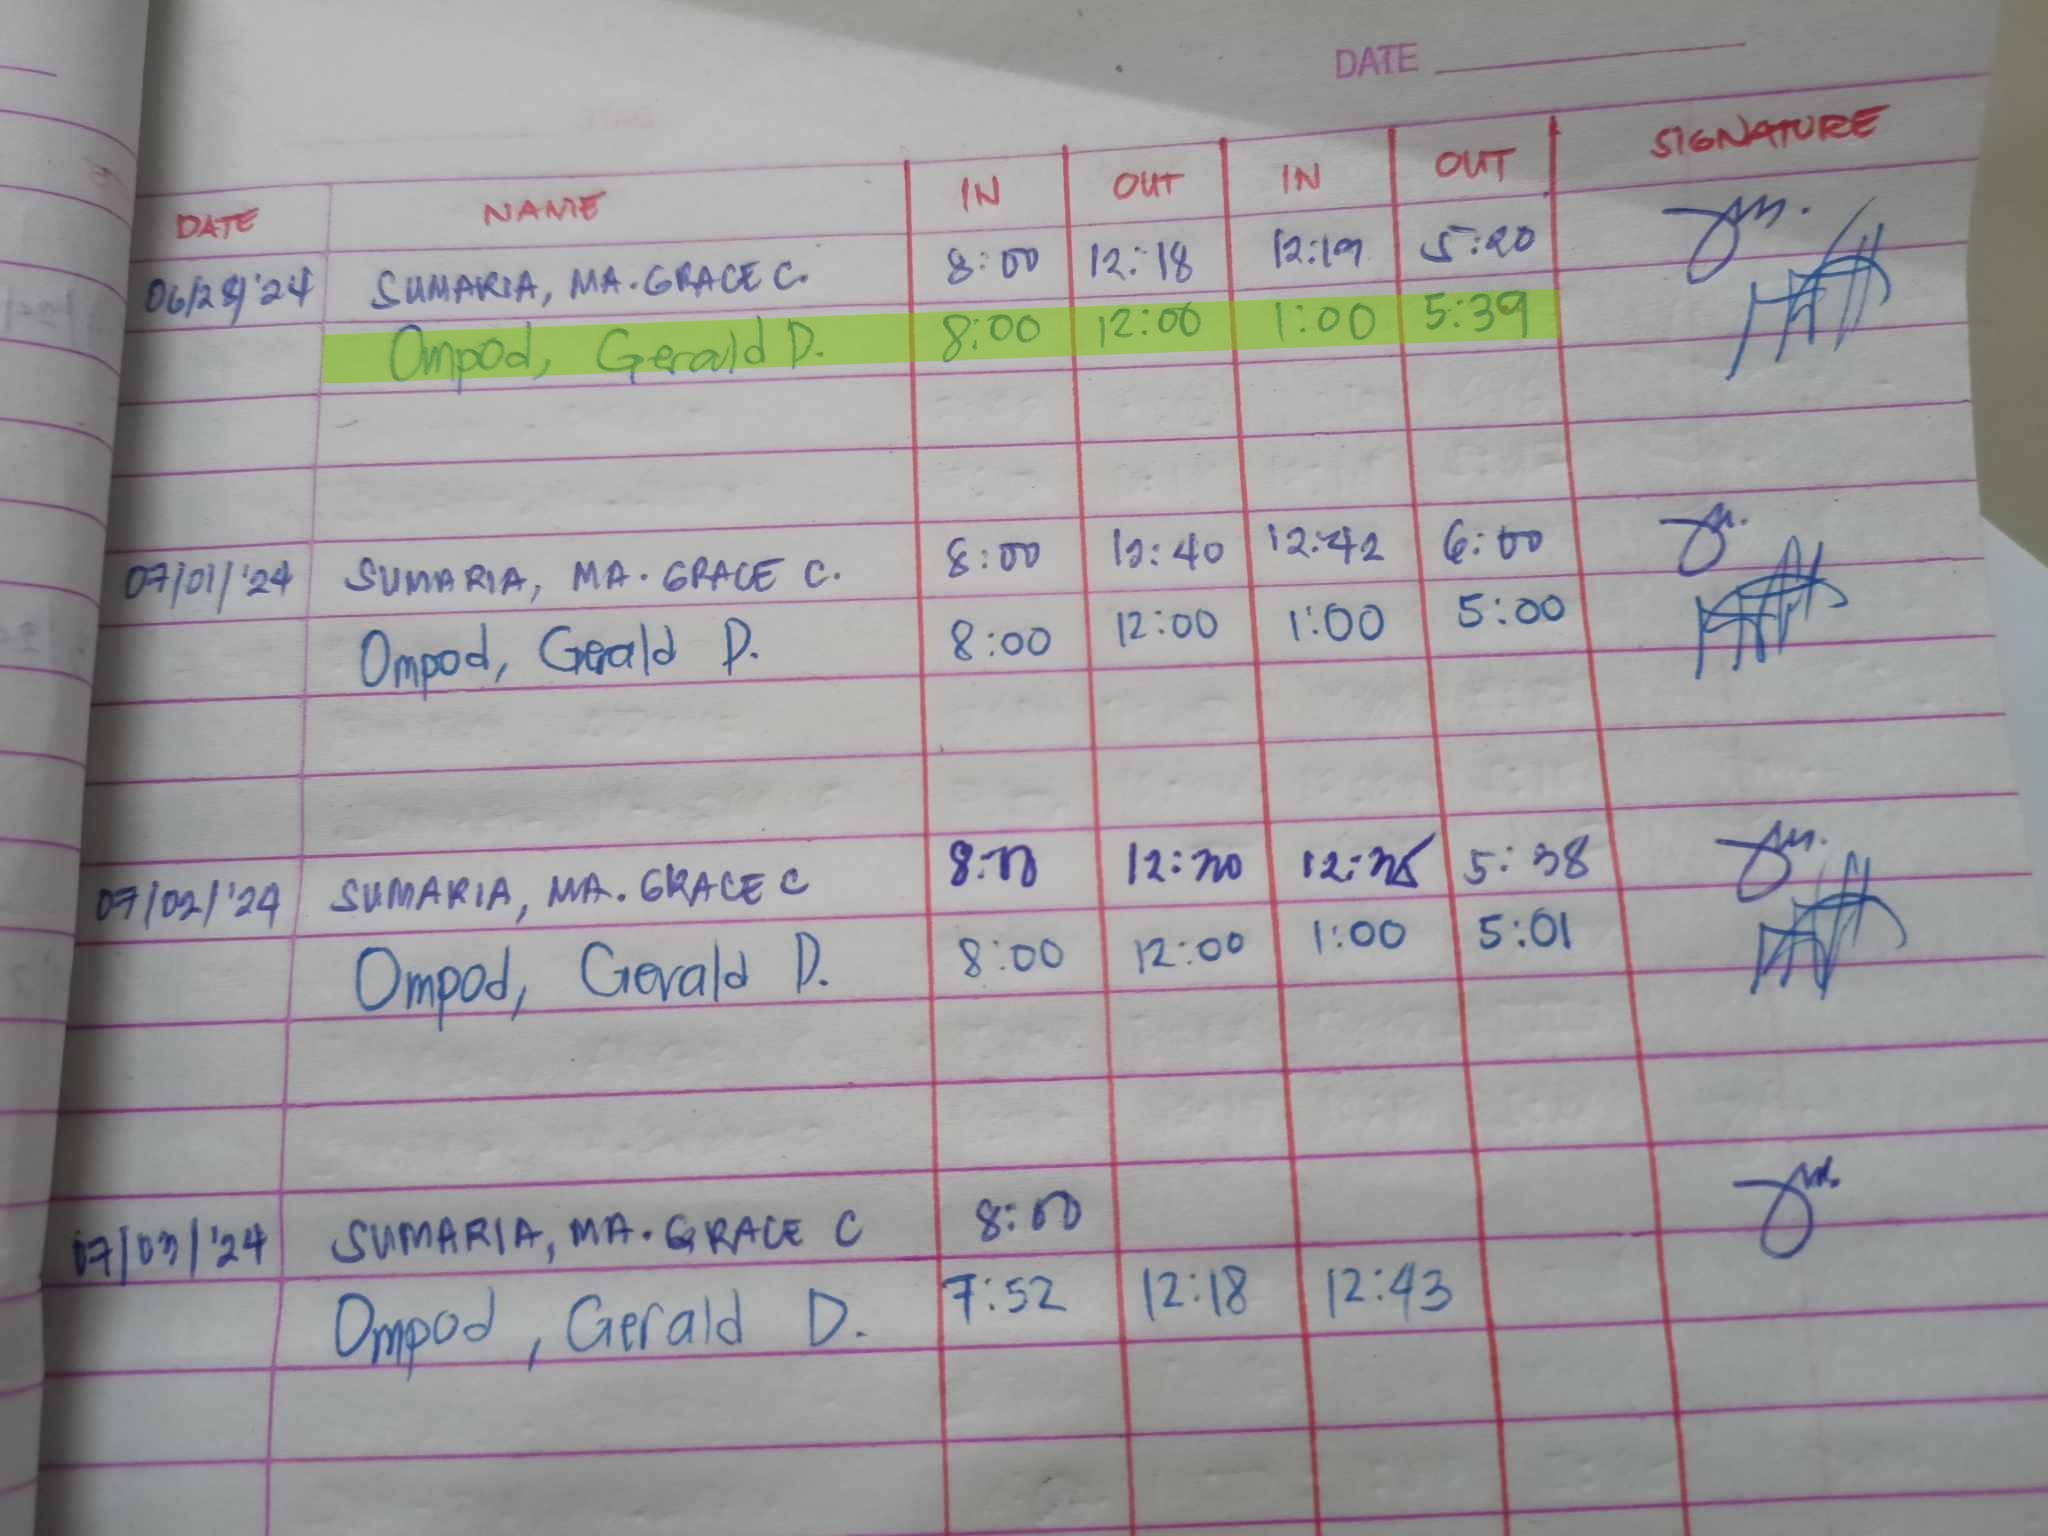 DATE
DATE NAME IN OUT IN OUT SIGNATURE
06/28/'24 SUMARIA, MA. GRACE C. 8:00 12:18 12:19 5:20
Ompod, Gerald D. 8:00 12:00 1:00 5:39
07/01/'24 SUMARIA, MA. GRACE C. 8:00 12:40 12:42 6:00
Ompod, Gerald D. 8:00 12:00 1:00 5:00
07/02/'24 SUMARIA, MA. GRACE C 8:00 5:38
Ompod, Gerald D. 8:00 12:00 1:00 5:01
07/03/'24 SUMARIA, MA. GRACE C 8:00
Ompod, Gerald D. 7:52 12:18 12:43